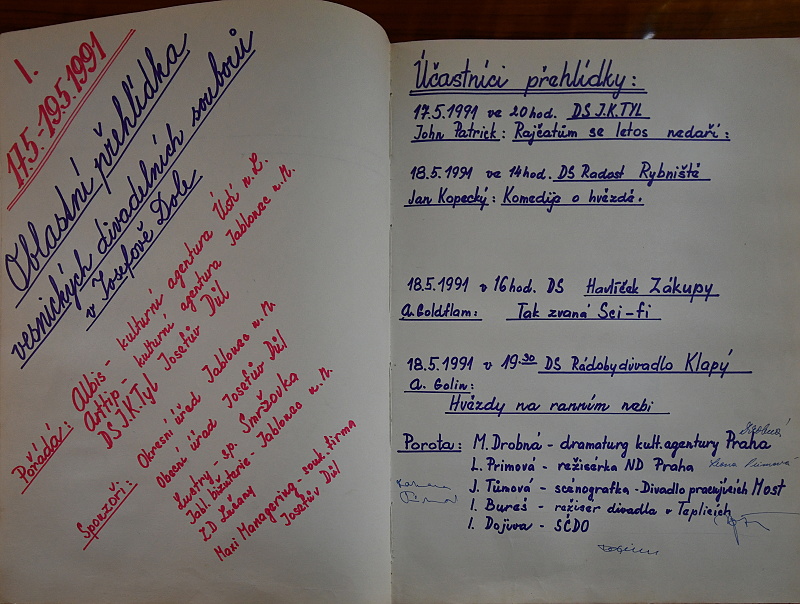 I.
17.5.-19.5.1991
Oblastní přehlídka
vesnických divadelních souborů
v Josefově Dole
Pořádá: Albis - kulturní agentura Ústí n.L.
Arttip - kulturní agentura Jablonec n.N.
DS J.K.Tyl Josefův Důl
Sponzoři: Okresní úřad Jablonec n.N.
Obecní úřad Josefův Důl
Lustry - sp. Smržovka
Jabl. bižuterie - Jablonec n.N.
ZD Lučany
Maxi Managering - souk. firma
Josefův Důl
Účastníci přehlídky:
17.5.1991 ve 20hod. DS J.K.TYL
John Patrick: Rajčatům se letos nedaří:
18.5.1991 ve 14hod. DS Radost Rybniště
Jan Kopecký: Komedija o hvězdě.
18.5.1991 v 16hod. DS Havlíček Zákupy
A.Goldflam: Tak zvaná Sci-fi
18.5.1991 v 19.30 DS Rádobydivadlo Klapý
A. Golin:
Hvězdy na ranním nebi
Porota: M. Drobná - dramaturg kult.agentury Praha
L. Primová - režisérka ND Praha
J. Tůmová - scénografka - Divadlo pracujících Most
I. Bureš - režiser divadla v Teplicích
I. Dojiva - SČDO